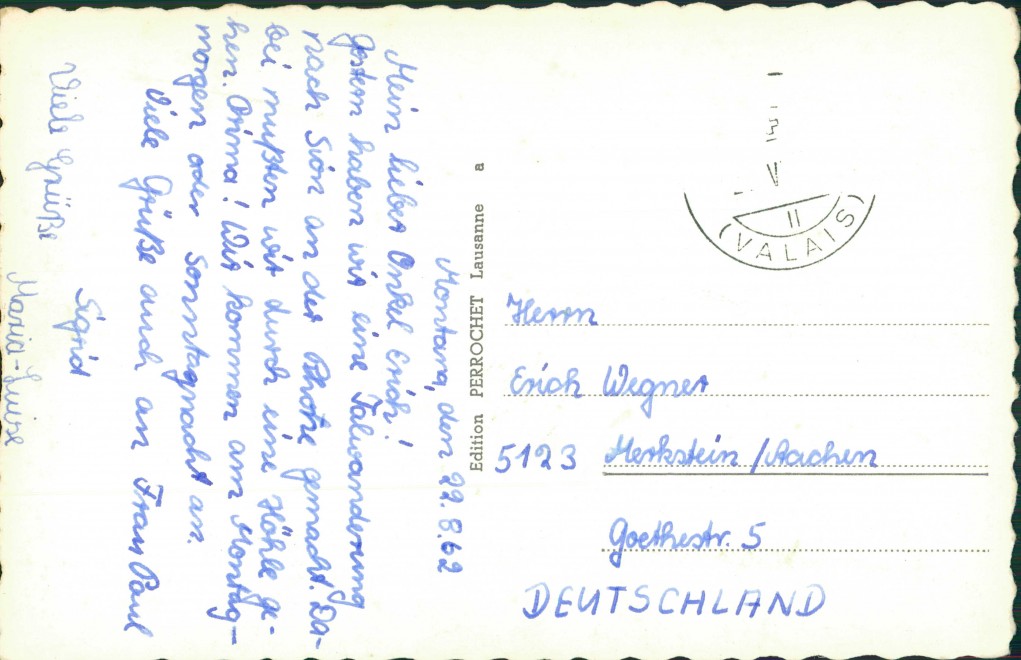 Montana, den 22. 8. 62
Mein lieber Onkel Erich!
Gestern haben wir eine Talwanderung
nach Sion an der Rhone gemacht. Da-
bei mußten wir durch eine Höhle ge-
hen. Prima! Wir kommen am Montag-
morgen oder Sonntagnacht an.
Viele Grüße auch an Frau Paul
Sigrid
Viele Grüße
Maria-Luise
Edition PERROCHET Lausanne a
(VALAIS)
II
V
Herrn
Erich Wegner
5123 Merkstein / Aachen
Goethestr. 5
DEUTSCHLAND